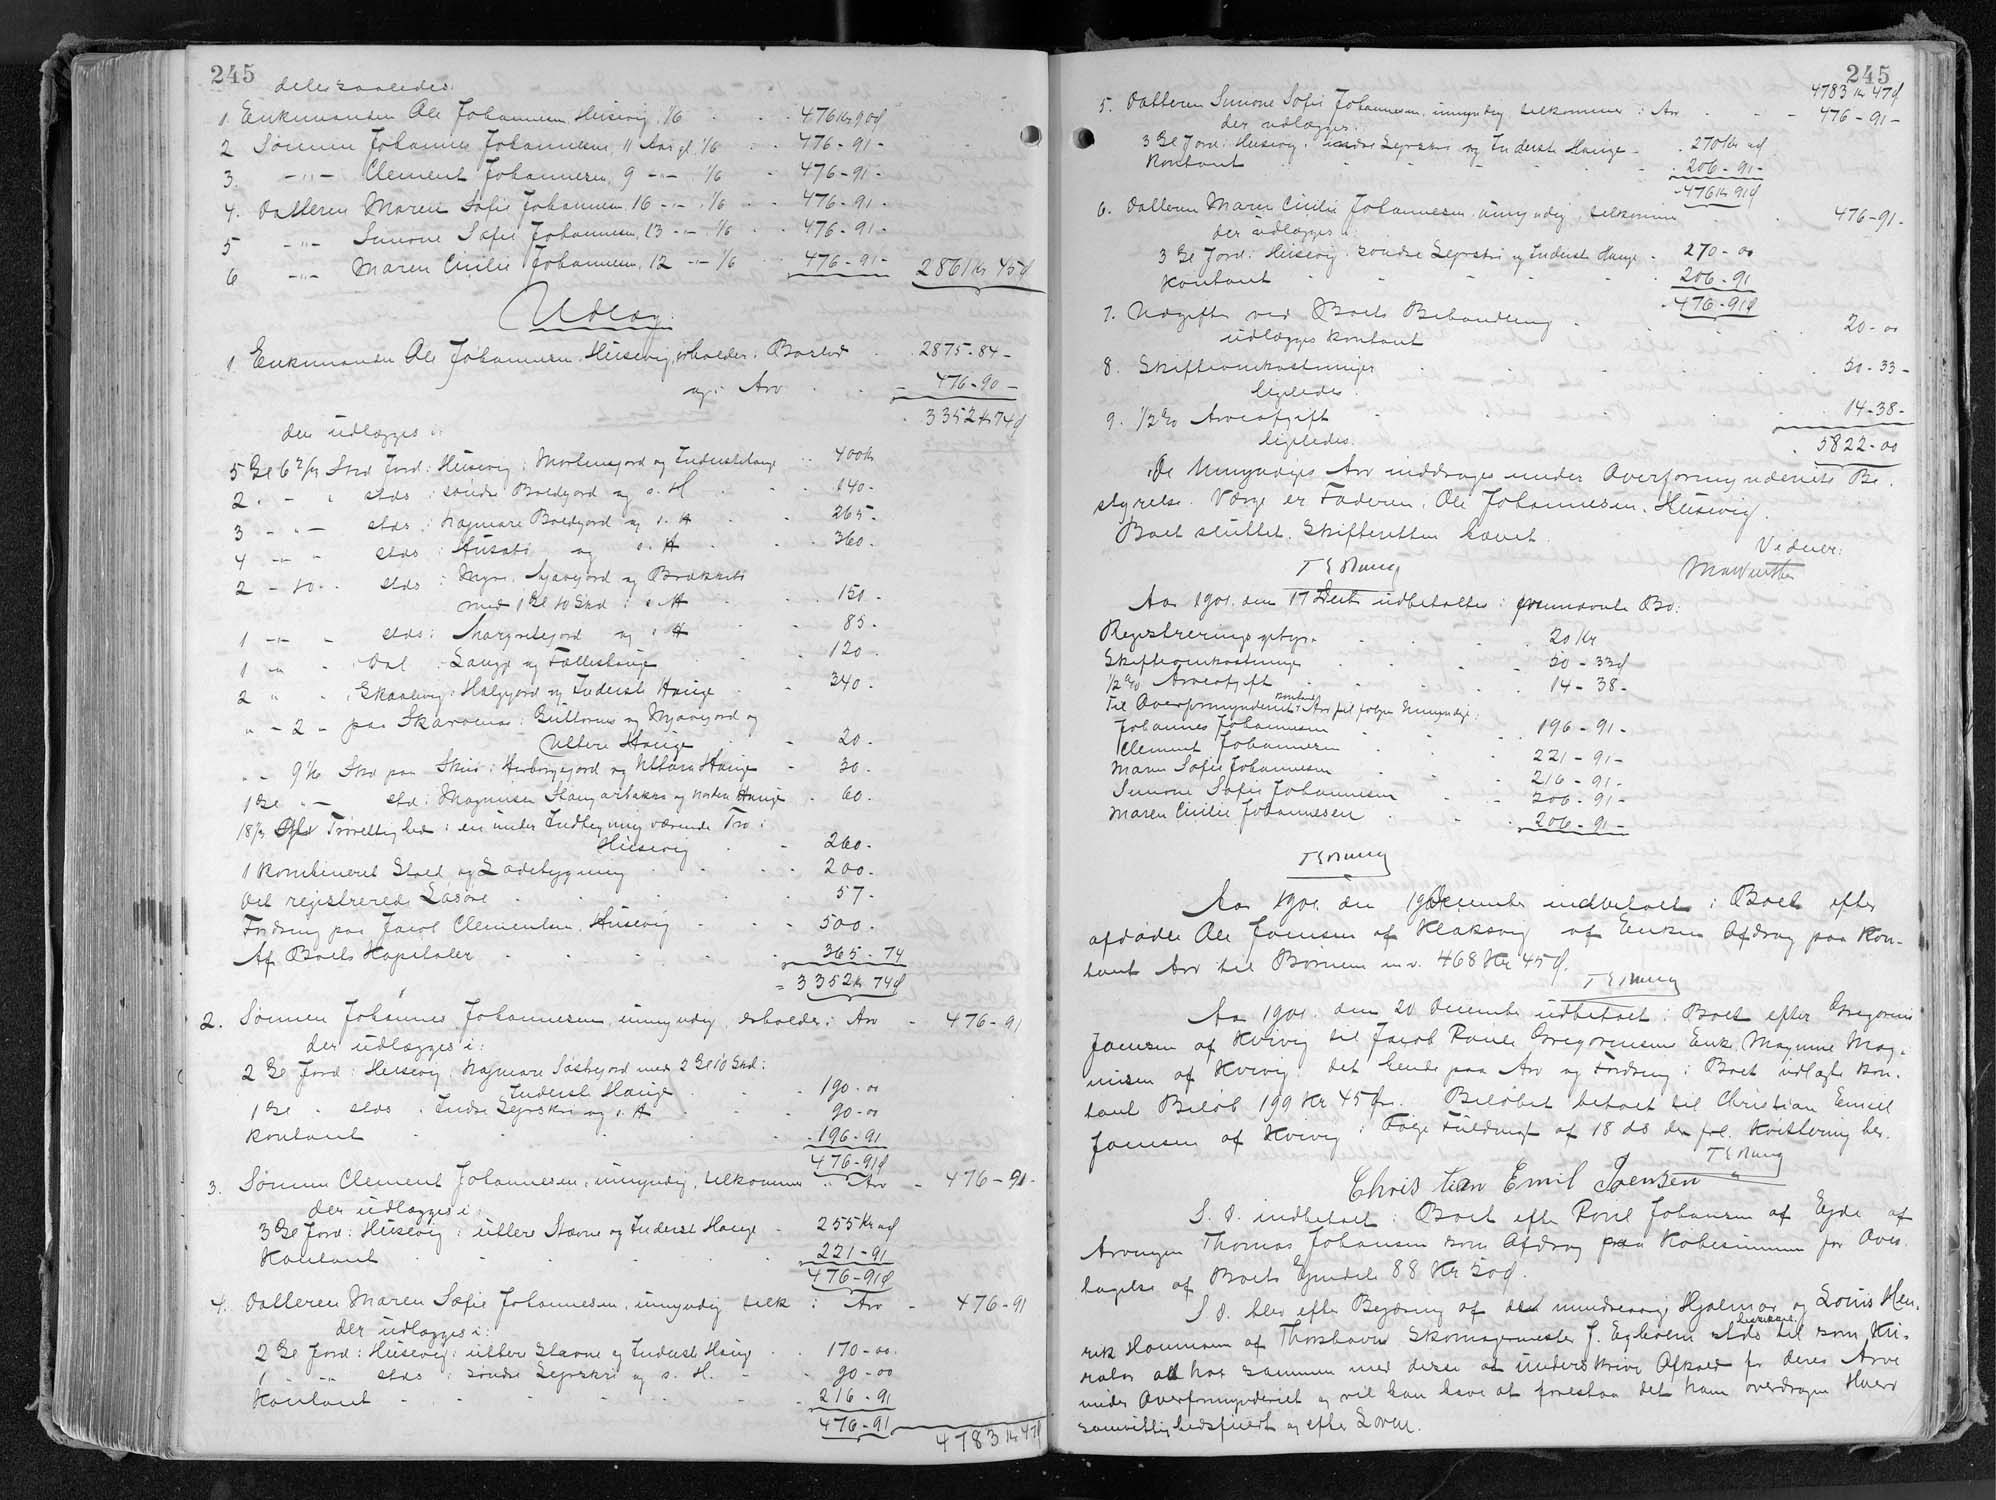 245
deles saaledes:
1. Enkemanden Ole Johannesen, Husevig, 1/6 - - 476 Kr 90 Ø
2 Sønnen Johannes Johannesen, 11 Aar gl, 1/6 - - 476 - 91 -
3. -"- Clement Johannesen, 9 -"- , 1/6 - 476 - 91 -
4. Datteren Maren Sofie Johannesen, 16 -"- , 1/6 - - 476 - 91 -
5 -"- Simone Sofie Johannesen, 13 -"- , 1/6 - - 476 - 91 -
6 -"- Maren Cicilie Johannesen, 12 -"- 1/6 - - 476 - 91 - 2861 Kr 45 Ø
Udlæg:
1. Enkemanden Ole Johannesen, Husevig, erholder: Boslod - 2875 - 84 -
og: Arv - - - 476 - 90 -
3352 Kr 74 Ø
der udlægges i:
5 Gl 6 2/3 Skd Jord i Husevig: Mortensgord og Inderstehauge - 400 Kr
2 - " - stds: søndre Boldgord og i. H - - 140 -
3 - " - stds: Nagmare Boldgord og i. H - - 265 -
4 - " - stds: Husabø og i. H - - 360 -
2 - 10 - stds: Myre, Sjavgord og Brekkus
med 1 Gl 10 Skd i i. H - - 150 -
1 - " - stds: Margretegord og i. H - - 85 -
1 " - i Dal: Lauge og Fælleshauge - - 120 -
2 " " i Skaalevig: Halgjord og Inderste Hauge - - 340 -
" - 2 - paa Skarvenes: Guttorms og Mjavegord og
Uttere Hauge - 20 -
- - 9 1/6 Skd paa Skuø: Herborgegord og Uttere Hauge - 30 -
1 Gl " - std: Magnusen Slangartakkes og norden Hauge - 60 -
18 1/3 Gylds Trørettighed i en under Indhegning værende Trø i
Husevig - - 260 -
1 kombineret Stald og Ladebygning - - - 200 -
Det registrerede Løsøre - - - 57 -
Fordring paa Jacob Clementsen, Husevig - - - 500 -
Af Boets Kapitaler - - - - 365 - 74
= 3352 Kr 74 Ø
2. Sønnen Johannes Johannesen, umyndig, erholder i Arv - 476 - 91
der udlægges i:
2 Gl Jord i Husevig, Nagmare Sosbegord med 2 Gl 10 Skd i
Inderste Hauge - - - 190 - 00
1 Gl " stds: Indre Leyrskri og i. H - - 90 - 00
kontant - - - - 196 - 91
476 - 91 Ø
3. Sønnen Clement Johannesen, umyndig, tilkommer i Arv - 476 - 91 -
der udlægges i:
3 Gl Jord i Husevig: uttere Stavne og Inderste Hauge - 255 Kr 00 Ø
Kontant - - - - 221 - 91
476 - 91 Ø
4. Datteren Maren Sofie Johannesen, umyndig tilk i Arv - 476 - 91
der udlægges i:
2 Gl Jord i Husevig: uttere Stavne og Inderste Hauge - - 170 - 00
1 -"- stds: søndre Leyrskri og i. H. - - 90 - 00
Kontant - - - - - 216 - 91
476 - 91 4783 Kr 47 Ø
245
4783 Kr 47 Ø
5. Datteren Simone Sofie Johannesen, umyndig tilkommer i Arv - - 476 - 91 -
der udlægges:
3 Gl Jord i Husevig: søndre Leyrskri og Inderste Hauge - 270 Kr 00 Ø
Kontant - - - - - 206 - 91 -
476 Kr 91 Ø
6. Datteren Maren Cicilie Johannesen, umyndig, tilkommer 476 - 91 -
der udlægges i:
3 Gl Jord i Husevig: søndre Leyrskri og Inderste Hauge - 270 - 00
Kontant - - - - - 206 - 91
476 - 91 Ø
7. Udgifter ved Boets Behandling - - - 20 - 00
udlægges kontant
8. Skifteomkostninger - - - - 20 - 33 -
ligeledes.
9. 1/2 % Arveafgift - - - - 14 - 38 -
ligeledes. 5822 - 00
De Umyndiges Arv inddrages under Overformynderiets Be-
styrelse. Værge er Faderen, Ole Johannesen, Husevig.
Boet sluttet. Skifteretten hævet
Vidner:
Aar 1901 den 17 Decb udbetaltes i forannævnte Bo:
Registreringsgebyr - - - - 20 Kr
Skifteomkostninger - - - - 20 - 33 Ø
1/2 % Arveafgift - - - - 14 - 38 -
Til Overformynderiet kontant Arv til følgen Umyndige:
Johannes Johannesen - - - 196 - 91 -
Clement Johannesen - - - 221 - 91 -
Maren Sofie Johannesen - - - 216 - 91 -
Simone Sofie Johannesen - - - 206 - 91 -
Maren Cicilie Johannesen - - - 206 - 91 -
Aar 1901 den 19 December indbetalt i Boet efter
afdøde Ole Joensen af Klaksvig af Enken Afdrag paa Kon-
tant Arv til Børnene m. v. 468 Kr 45 Ø.
Aar 1901 den 20 December udbetalt i Boet efter Gregorius
Joensen af Kvivig til Jacob Poule Gregoriussens Enke, Magnine Mag-
nusen af Kvivig: det hende paa Arv og Fordring i Boet udlagte kon-
tant Beløb 199 Kr 45 Ør. Beløbet betalt til Christian Emil
Joensen af Kvivig i Følge Fuldmagt af 18 ds der frl. Kvittering her.
Christian Emil Joensen
S. D. indbetalt i Boet efter Poul Johansen af Ejde af
Arvingen Thomas Johansen som Afdrag paa Købesummen for Over-
tagelse af Boets Ejendele 88 Kr 20 Ø.
S. D. blev efter Begæring af de mindreaarige Hjalmar og Louis Hen-
rik Hannesen af Thorshavn Skomagermester J. Egholm stds beskikket til som Ku-
rator at har sammen med disse at underskrive Afkald for deres Arv
under Overformynderiet og vil han have at forestaa det ham overdragne Hverv
samvittighedsfuldt og efter Loven.